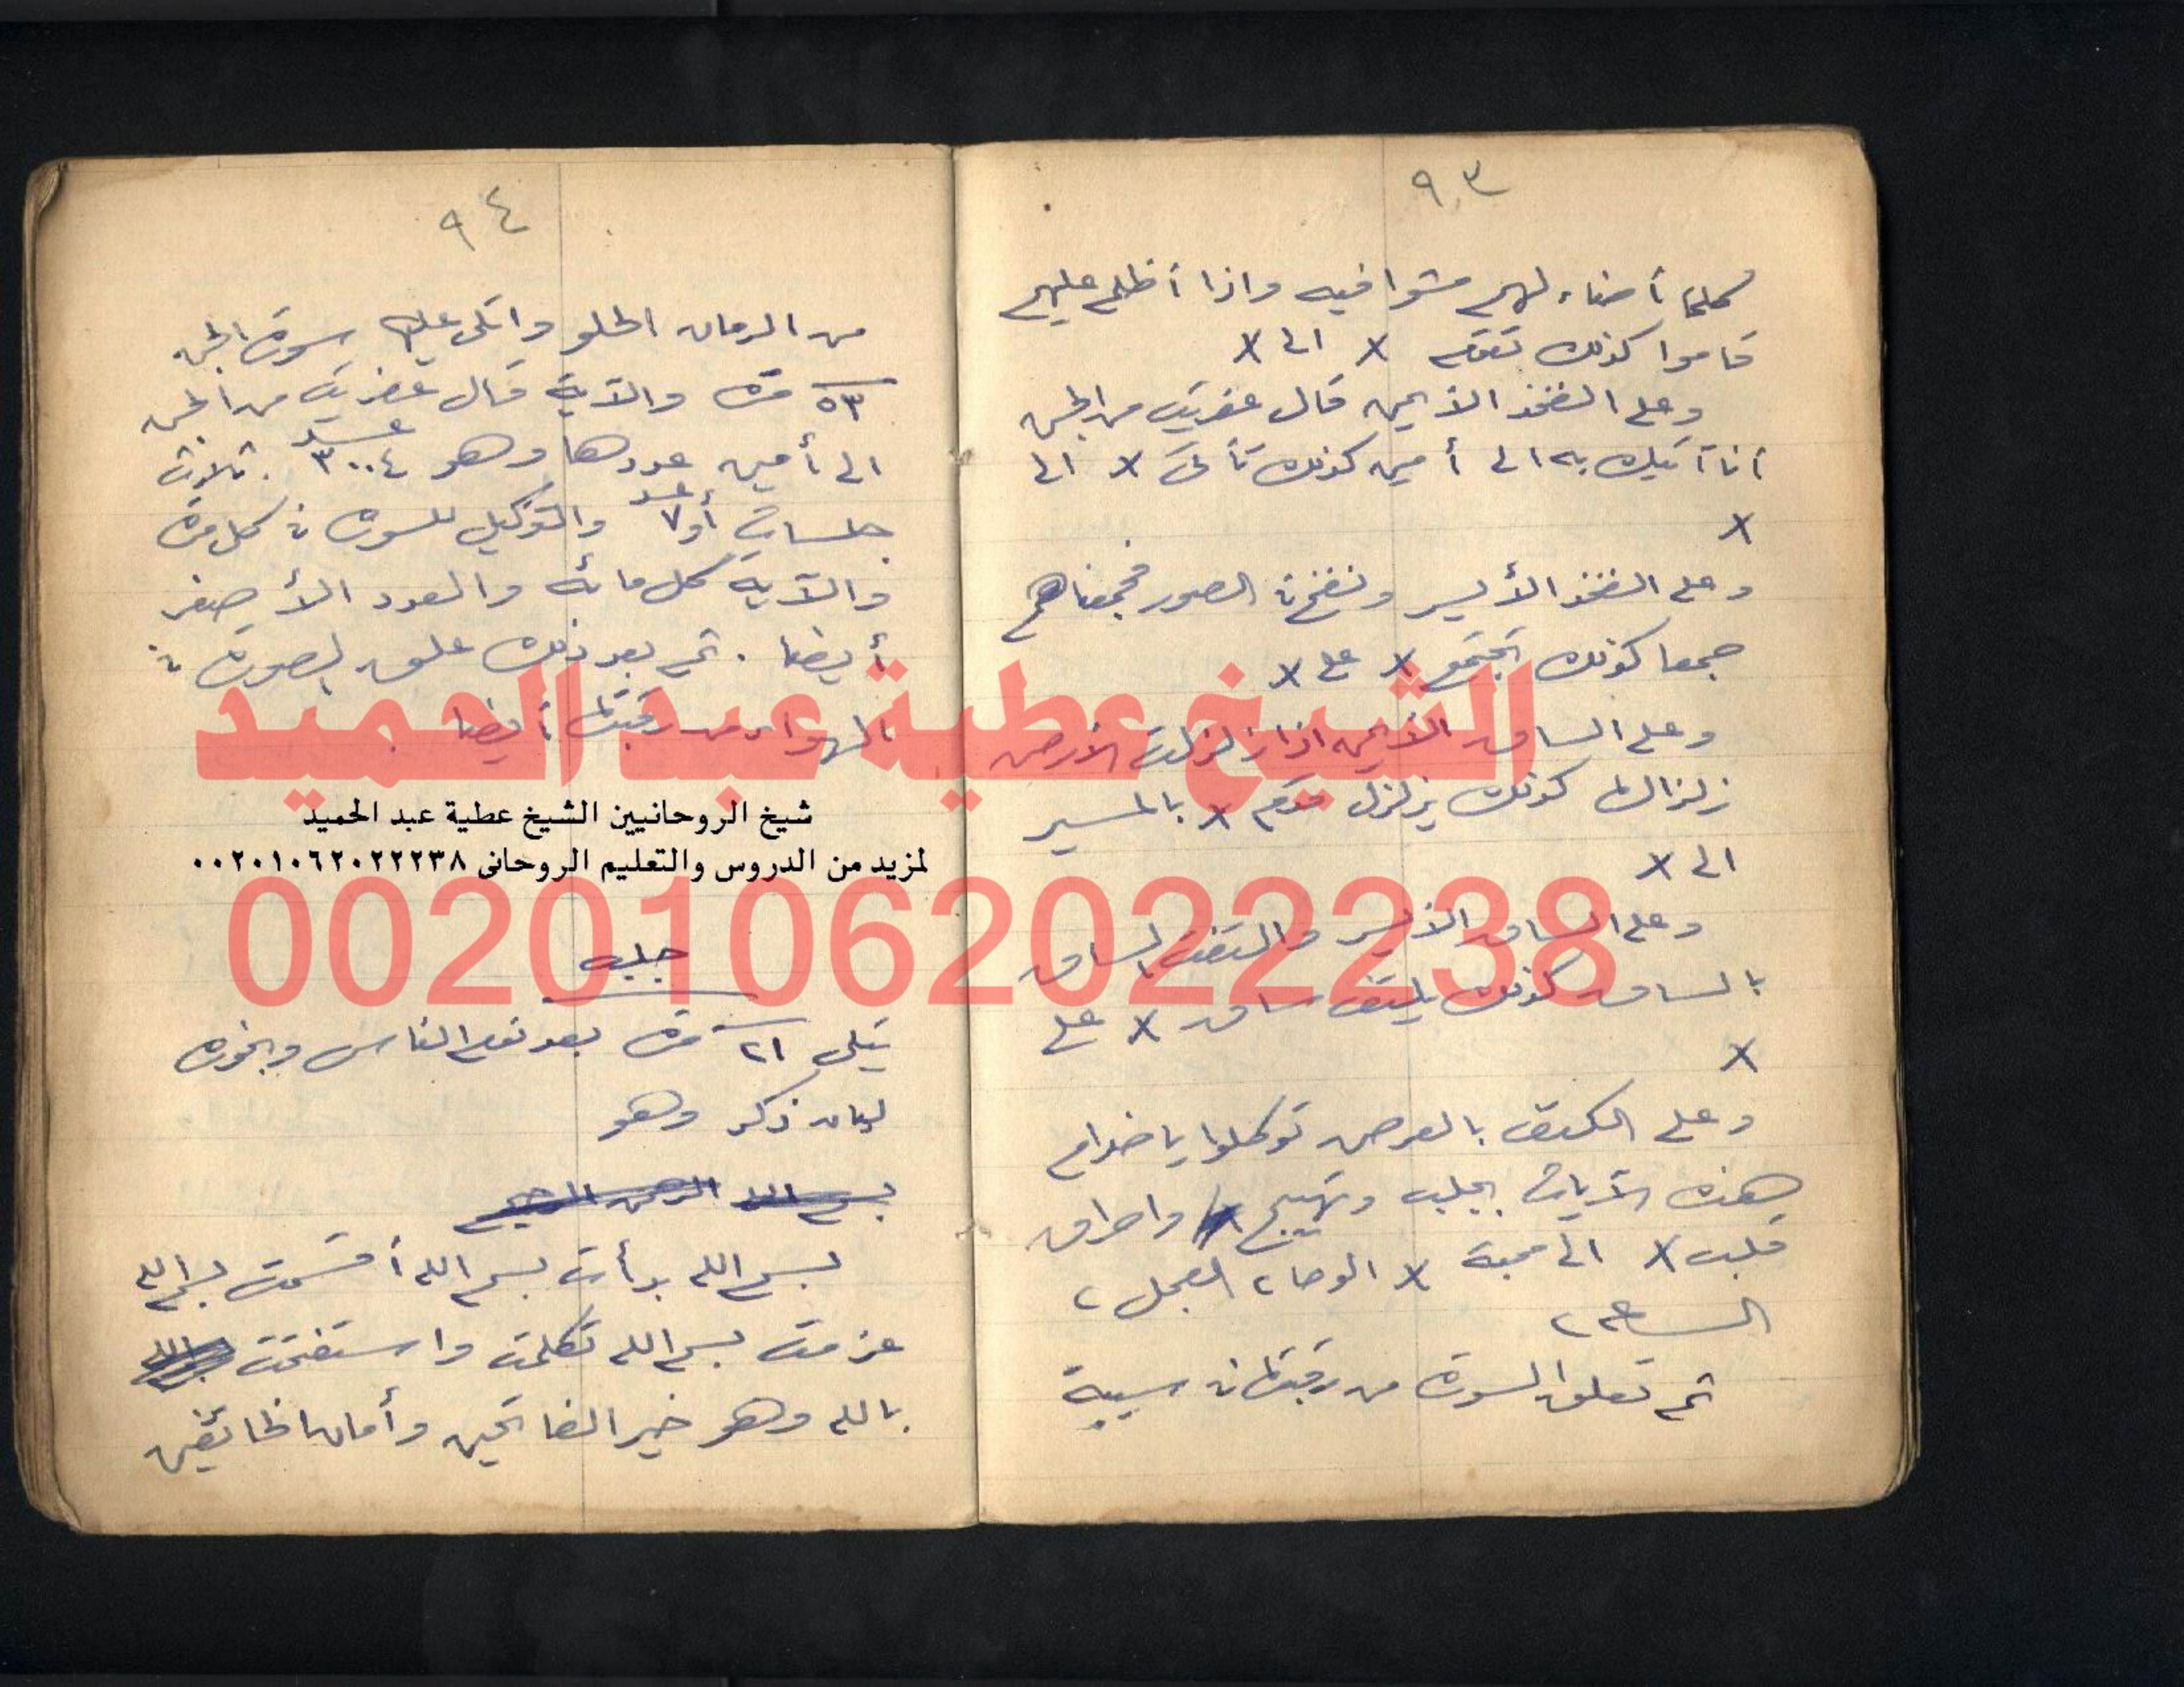 ٩٣
كلما أضاء لهم مشوا فيه واذا أظلم عليهم
قاموا كذلك تقوم x الى x
وعلى الفخذ الأيمن قال عفريت من الجن
أنا آتيك به الى أمين كذلك تأتى x الى
x
وعلى الفخذ الأيسر ونفخ فى الصور فجمعناهم
جمعا كذلك تجتمع x على x
وعلى الساق الأيمن اذا زلزلت الأرض
زلزالها كذلك يزلزل قدم x بالمسير
الى x
وعلى الساق الأيسر والتفت الساق
بالساق كذلك يلتف ساق x على
x
وعلى الكتف بالعرض توكلوا يا خدام
هذه الآيات بجلب وتهييج واحراق
قلب x الى محبة x الوحا ٢ العجل ٢
الساعة ٢
ثم تعلق الصورة من رقبتها فى سيبة
٩٤
من الرمان الحلو واتلى عليها سورة الجن
٥٣ مرة والآية قال عفريت من الجن
الى أمين عددها وهو ٣٠٠٤ عدد . ثلاث
جلسات أو ٧ عدد والتوكيل للسورة فى كل مرة
والآية كل مائة والعدد الأصغر
أيضا . ثم بعد ذلك علق الصورة فى
الهواء من رقبتها أيضا .
الشيخ عطية عبد الحميد
شيخ الروحانيين الشيخ عطية عبد الحميد
لمزيد من الدروس والتعليم الروحانى ٠٠٢٠١٠٦٢٠٢٢٢٣٨
00201062022238
جلب
يتلى ٢١ مرة بعد نوم الناس وبخوره
لبان ذكر وهو
بسم الله الرحمن الرحيم
بسم الله بدأت بسم الله أقسمت بسم الله
عزمت بسم الله تكلمت واستفتحت
بالله وهو خير الفاتحين وأمان الخائفين